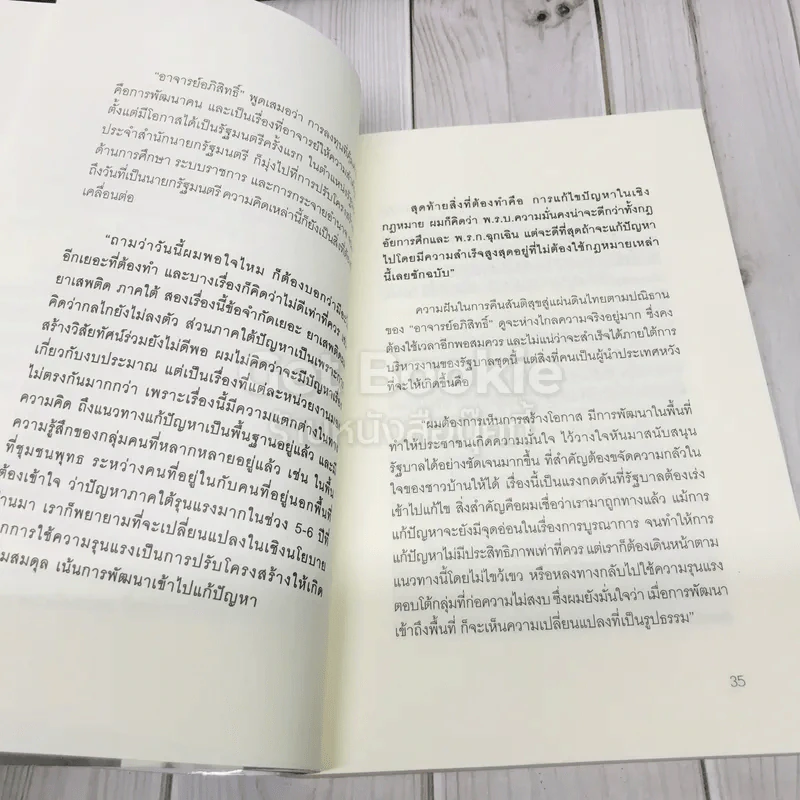 "อาจารย์อภิสิทธิ์" พูดเสมอว่า การลงทุนที่
คือการพัฒนาคน และเป็นเรื่องที่อาจารย์ให้ความ
ตั้งแต่มีโอกาสได้เป็นรัฐมนตรีครั้งแรก ในตำแหน่ง
ประจำสำนักนายกรัฐมนตรี ก็มุ่งไปที่การปรับโครง
ด้านการศึกษา ระบบราชการ และการกระจายอำนาจ
ถึงวันที่เป็นนายกรัฐมนตรี ความคิดเหล่านี้ก็ยังเป็นสิ่ง
เคลื่อนต่อ
"ถามว่าวันนี้ผมพอใจไหม ก็ต้องบอกว่ามี
อีกเยอะที่ต้องทำ และบางเรื่องก็คิดว่าไม่ดีเท่าที่ควร
ยาเสพติด ภาคใต้ สองเรื่องนี้ข้อจำกัดเยอะ ยาเสพติด
คิดว่ากลไกยังไม่ลงตัว ส่วนภาคใต้ปัญหาเป็นเพราะ
สร้างวิสัยทัศน์ร่วมยังไม่ดีพอ ผมไม่คิดว่าจะมีปัญหา
เกี่ยวกับงบประมาณ แต่เป็นเรื่องที่แต่ละหน่วยงาน
ไม่ตรงกันมากกว่า เพราะเรื่องนี้มีความแตกต่างใน
ความคิด ถึงแนวทางแก้ปัญหาเป็นพื้นฐานอยู่แล้ว และ
ความรู้สึกของกลุ่มคนที่หลากหลายอยู่แล้ว เช่น ในพื้น
ที่ชุมชนพุทธ ระหว่างคนที่อยู่ในกับคนที่อยู่นอกพื้นที่
ต้องเข้าใจ ว่าปัญหาภาคใต้รุนแรงมากในช่วง 5-6 ปีที่
านมา เราก็พยายามที่จะเปลี่ยนแปลงในเชิงนโยบาย
กการใช้ความรุนแรงเป็นการปรับโครงสร้างให้เกิด
มสมดุล เน้นการพัฒนาเข้าไปแก้ปัญหา
สุดท้ายสิ่งที่ต้องทำคือ การแก้ไขปัญหาในเชิง
กฎหมาย ผมก็คิดว่า พ.ร.บ.ความมั่นคงน่าจะดีกว่าทั้งกฎ
อัยการศึกและ พ.ร.ก.ฉุกเฉิน แต่จะดีที่สุดถ้าจะแก้ปัญหา
ไปโดยมีความสำเร็จสูงสุดอยู่ที่ไม่ต้องใช้กฎหมายเหล่า
นี้เลยซักฉบับ"
ความฝันในการคืนสันติสุขสู่แผ่นดินไทยตามปณิธาน
ของ "อาจารย์อภิสิทธิ์" ดูจะห่างไกลความจริงอยู่มาก ซึ่งคง
ต้องใช้เวลาอีกพอสมควร และไม่แน่ว่าจะสำเร็จได้ภายใต้การ
บริหารงานของรัฐบาลชุดนี้ แต่สิ่งที่คนเป็นผู้นำประเทศหวัง
ที่จะให้เกิดขึ้นคือ
"ผมต้องการเห็นการสร้างโอกาส มีการพัฒนาในพื้นที่
ทำให้ประชาชนเกิดความมั่นใจ ไว้วางใจหันมาสนับสนุน
รัฐบาลได้อย่างชัดเจนมากขึ้น ที่สำคัญต้องขจัดความกลัวใน
ใจของชาวบ้านให้ได้ เรื่องนี้เป็นแรงกดดันที่รัฐบาลต้องเร่ง
เข้าไปแก้ไข สิ่งสำคัญคือผมเชื่อว่าเรามาถูกทางแล้ว แม้การ
แก้ปัญหาจะยังมีจุดอ่อนในเรื่องการบูรณาการ จนทำให้การ
แก้ปัญหาไม่มีประสิทธิภาพเท่าที่ควร แต่เราก็ต้องเดินหน้าตาม
แนวทางนี้โดยไม่ไขว้เขว หรือหลงทางกลับไปใช้ความรุนแรง
ตอบโต้กลุ่มที่ก่อความไม่สงบ ซึ่งผมยังมั่นใจว่า เมื่อการพัฒนา
เข้าถึงพื้นที่ ก็จะเห็นความเปลี่ยนแปลงที่เป็นรูปธรรม"
35